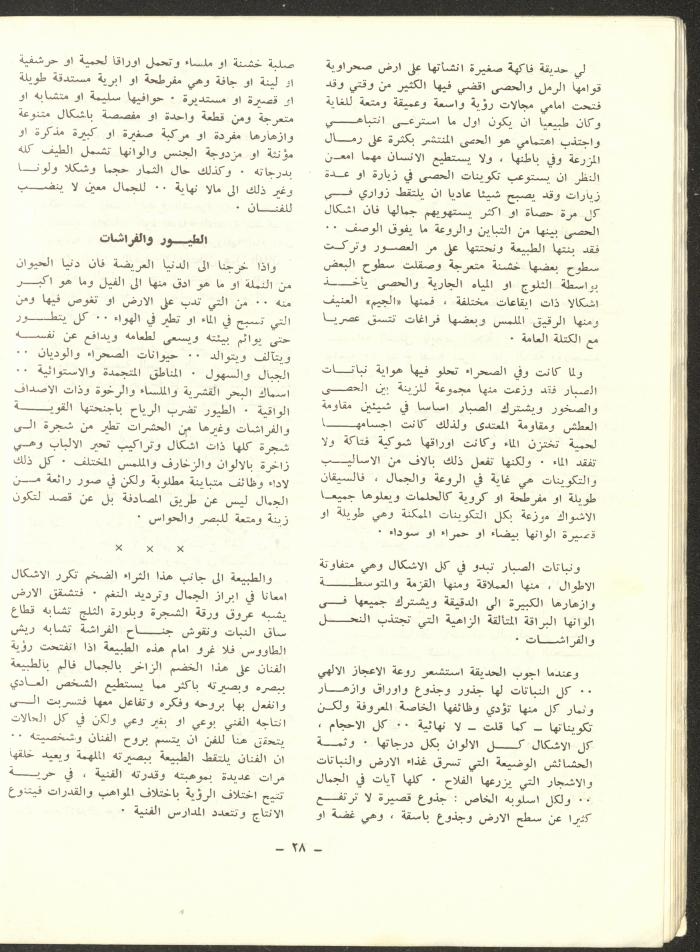 لي حديقة فاكهة صغيرة انشأتها على ارض صحراوية
قوامها الرمل والحصى اقضي فيها الكثير من وقتي وقد
فتحت امامي مجالات رؤية واسعة وعميقة ومتعة للغاية
وكان طبيعيا ان يكون اول ما استرعى انتباهي
واجتذب اهتمامي هو الحصى المنتشر بكثرة على رمال
المزرعة وفي باطنها ، ولا يستطيع الانسان مهما امعن
النظر ان يستوعب تكوينات الحصى في زيارة او عدة
زيارات وقد يصبح شيئا عاديا ان يلتقط زواري في
كل مرة حصاة او اكثر يستهويهم جمالها فان اشكال
الحصى بينها من التباين والروعة ما يفوق الوصف ٠٠
فقد بنتها الطبيعة ونحتتها على مر العصور وتركت
سطوح بعضها خشنة متعرجة وصقلت سطوح البعض
بواسطة الثلوج او المياه الجارية والحصى يأخذ
اشكالا ذات ايقاعات مختلفة ، فمنها «الجيم» العنيف
ومنها الرقيق الملمس وبعضها فراغات تتسق عصريا
مع الكتلة العامة ٠
ولما كانت وفي الصحراء تحلو فيها هواية نباتات
الصبار فقد وزعت منها مجموعة للزينة بين الحصى
والصخور ويشترك الصبار اساسا في شيئين مقاومة
العطش ومقاومة المعتدى ولذلك كانت اجسامها
لحمية تختزن الماء وكانت اوراقها شوكية فتاكة ولا
تفقد الماء ٠ ولكنها تفعل ذلك بالاف من الاساليب
والتكوينات هي غاية في الروعة والجمال ، فالسيقان
طويلة او مفرطحة او كروية كالحلمات ويعلوها جميعا
الاشواك موزعة بكل التكوينات الممكنة وهي طويلة او
قصيرة الوانها بيضاء او حمراء او سوداء ٠
ونباتات الصبار تبدو في كل الاشكال وهي متفاوتة
الاطوال ، منها العملاقة ومنها القزمة والمتوسطة
وازهارها الكبيرة الى الدقيقة ويشترك جميعها في
الوانها البراقة المتالقة الزاهية التي تجتذب النحل
والفراشات ٠
وعندما اجوب الحديقة استشعر روعة الاعجاز الالهي
٠٠ كل النباتات لها جذور وجذوع واوراق وازهار
وثمار كل منها تؤدي وظائفها الخاصة المعروفة ولكن
تكويناتها ــ كما قلت ــ لا نهائية ٠٠ كل الاحجام ،
كل الاشكال كل الالوان بكل درجاتها ٠ وثمة
الحشائش الوضيعة التي تسرق غذاء الارض والنباتات
والاشجار التي يزرعها الفلاح ٠ كلها آيات في الجمال
٠٠ ولكل اسلوبه الخاص : جذوع قصيرة لا ترتفع
كثيرا عن سطح الارض وجذوع باسقة ، وهي غضة او
صلبة خشنة او ملساء وتحمل اوراقا لحمية او حرشفية
او لينة او جافة وهي مفرطحة او ابرية مستدقة طويلة
او قصيرة او مستديرة ٠ حوافيها سليمة او متشابه او
متعرجة ومن قطعة واحدة او مفصصة باشكال متنوعة
وازهارها مفردة او مركبة صغيرة او كبيرة مذكرة او
مؤنثة او مزدوجة الجنس والوانها تشمل الطيف كله
بدرجاته ٠ وكذلك حال الثمار حجما وشكلا ولونا
وغير ذلك الى مالا نهاية ٠٠ للجمال معين لا ينضب
للفنان ٠
الطيور والفراشات
واذا خرجنا الى الدنيا العريضة فان دنيا الحيوان
من النملة او ما هو ادق منها الى الفيل وما هو اكبر
منه ٠٠ من التي تدب على الارض او تغوص فيها ومن
التي تسبح في الماء او تطير في الهواء ٠٠ كل يتطور
حتى يوائم بيئته ويسعى لطعامه ويدافع عن نفسه
ويتآلف ويتوالد ٠٠ حيوانات الصحراء والوديان ٠٠
الجبال والسهول ٠ المناطق المتجمدة والاستوائية ٠٠
اسماك البحر القشرية والملساء والرخوة وذات الاصداف
الواقية ٠ الطيور تضرب الرياح باجنحتها القوية
والفراشات وغيرها من الحشرات تطير من شجرة الى
شجرة كلها ذات اشكال وتراكيب تحير الالباب وهي
زاخرة بالالوان والزخارف والملمس المختلف ٠ كل ذلك
لاداء وظائف متباينة مطلوبة ولكن في صور رائعة من
الجمال ليس عن طريق المصادفة بل عن قصد لتكون
زينة ومتعة للبصر والحواس ٠
× × ×
والطبيعة الى جانب هذا الثراء الضخم تكرر الاشكال
امعانا في ابراز الجمال وترديد النغم ٠ فتشقق الارض
يشبه عروق ورقة الشجرة وبلورة الثلج تشابه قطاع
ساق النبات ونقوش جناح الفراشة تشابه ريش
الطاووس فلا غرو امام هذه الطبيعة اذا انفتحت رؤية
الفنان على هذا الخضم الزاخر بالجمال فالم بالطبيعة
ببصره وبصيرته باكثر مما يستطيع الشخص العادي
وانفعل بها بروحه وفكره وتفاعل معها فتسربت الى
انتاجه الفني بوعي او بغير وعي ولكن في كل الحالات
يتحقق هنا للفن ان يتسم بروح الفنان وشخصيته ٠٠
ان الفنان يلتقط الطبيعة ببصيرته الملهمة ويعيد خلقها
مرات عديدة بموهبته وقدرته الفنية ، في حرية
تتيح اختلاف الرؤية باختلاف المواهب والقدرات فيتنوع
الانتاج وتتعدد المدارس الفنية ٠
ــ ٢٨ ــ